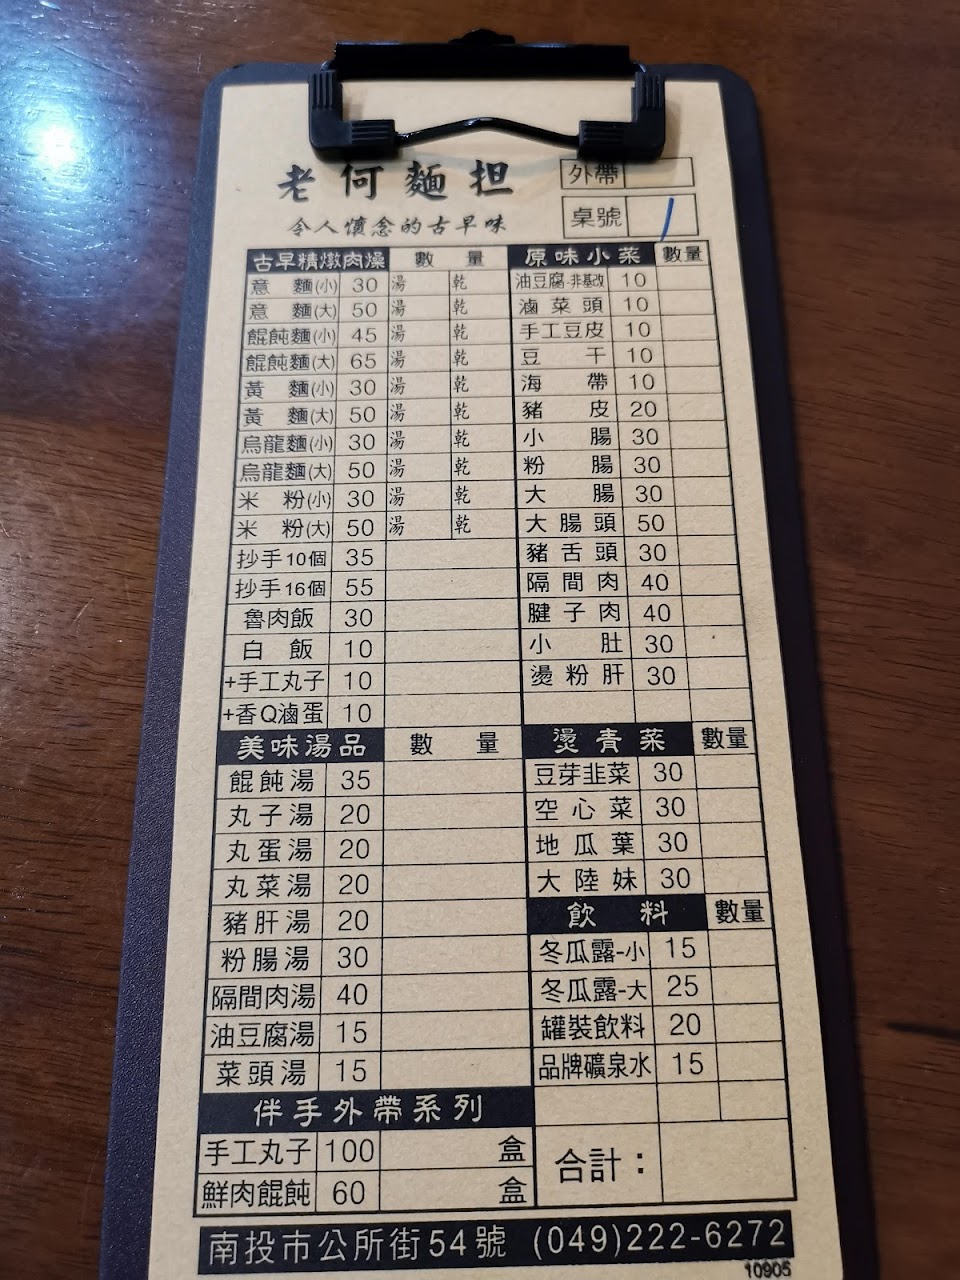 老何麵担
外帶
令人懷念的古早味
桌號 1
古早精燉肉燥 數量
意麵(小) 30 湯 乾
意麵(大) 50 湯 乾
餛飩麵(小) 45 湯 乾
餛飩麵(大) 65 湯 乾
黃麵(小) 30 湯 乾
黃麵(大) 50 湯 乾
烏龍麵(小) 30 湯 乾
烏龍麵(大) 50 湯 乾
米粉(小) 30 湯 乾
米粉(大) 50 湯 乾
抄手10個 35
抄手16個 55
魯肉飯 30
白飯 10
+手工丸子 10
+香Q滷蛋 10
美味湯品 數量
餛飩湯 35
丸子湯 20
丸蛋湯 20
丸菜湯 20
豬肝湯 20
粉腸湯 30
隔間肉湯 40
油豆腐湯 15
菜頭湯 15
伴手外帶系列
手工丸子 100 盒
鮮肉餛飩 60 盒
原味小菜 數量
油豆腐-非基改 10
滷菜頭 10
手工豆皮 10
豆干 10
海帶 10
豬皮 20
小腸 30
粉腸 30
大腸 30
大腸頭 50
豬舌頭 30
隔間肉 40
腱子肉 40
小肚 30
燙粉肝 30
燙青菜 數量
豆芽韭菜 30
空心菜 30
地瓜葉 30
大陸妹 30
飲料 數量
冬瓜露-小 15
冬瓜露-大 25
罐裝飲料 20
品牌礦泉水 15
合計：
南投市公所街54號 (049)222-6272
10905